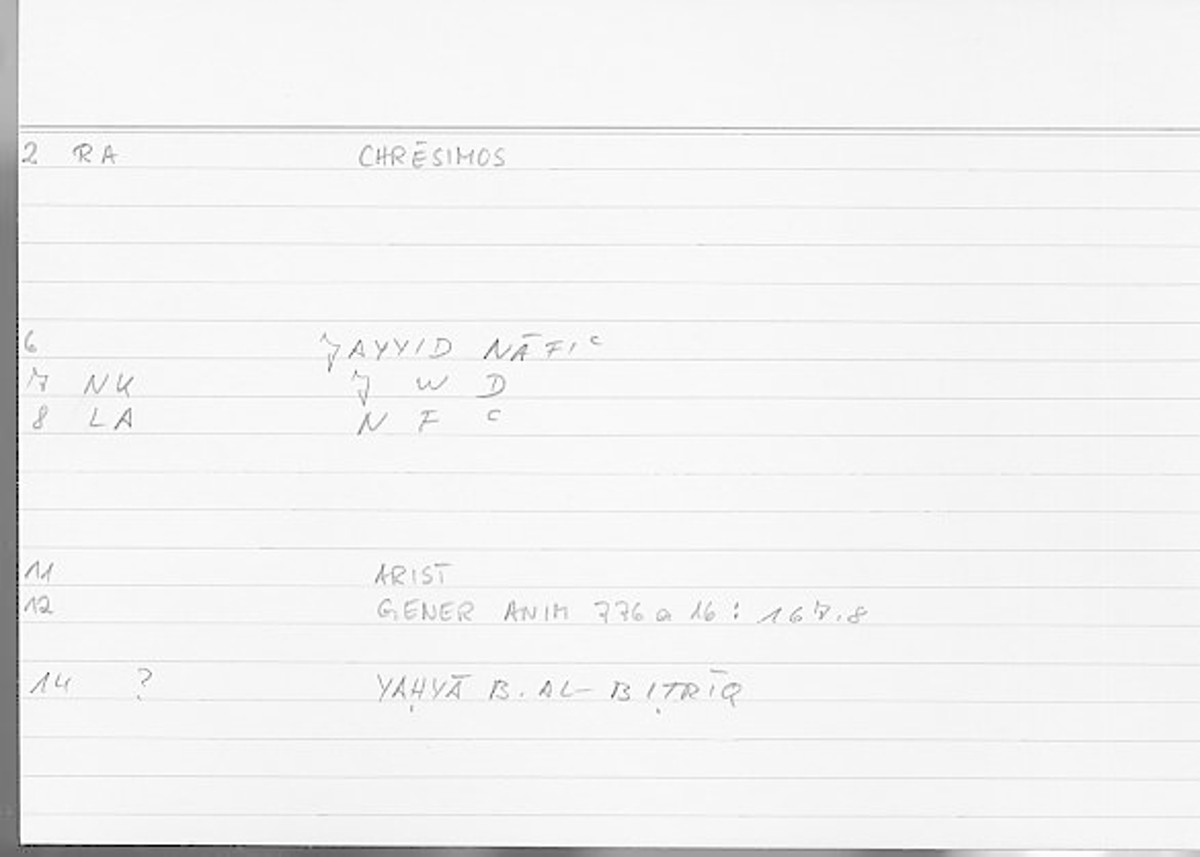 2 RA CHRĒSIMOS
6 JAYYID NĀFIʿ
7 NK J W D
8 LA N F ʿ
11 ARIST
12 GENER ANIM 776 a 16 : 167.8
14 ? YAḤYĀ B. AL-BIṬRĪQ